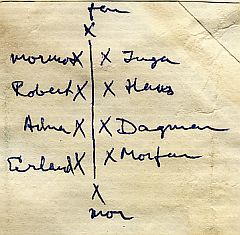 far
X
mormor X X Inga
Robert X X Hans
Adna X X Dagmar
Erland X X Morfar
X
mor